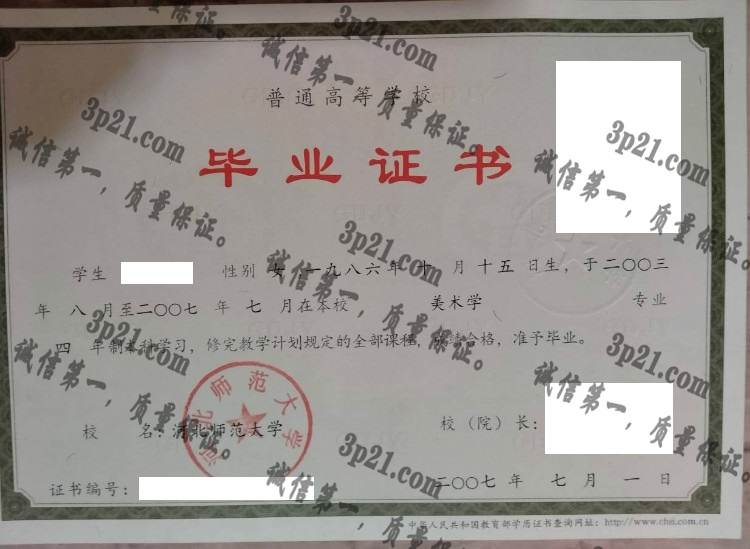 普通高等学校
毕业证书
学生 性别 女,一九八六年 十 月 十五 日生,于二〇〇三
年 八 月至二〇〇七 年 七 月在本校 美术学 专业
四 年制本科学习,修完教学计划规定的全部课程,成绩合格,准予毕业。
校 名:河北师范大学
校(院)长:
河北师范大学
证书编号:
二〇〇七 年 七 月 一 日
中华人民共和国教育部学历证书查询网址:http://www.chsi.com.cn
3p21.com
诚信第一,质量保证。
3p21.com
诚信第一,质量保证。
3p21.com
诚信第一,质量保证。
3p21.com
诚信第一,质量保证。
3p21.com
诚信第一,质量保证。
3p21.com
诚信第一,质量保证。